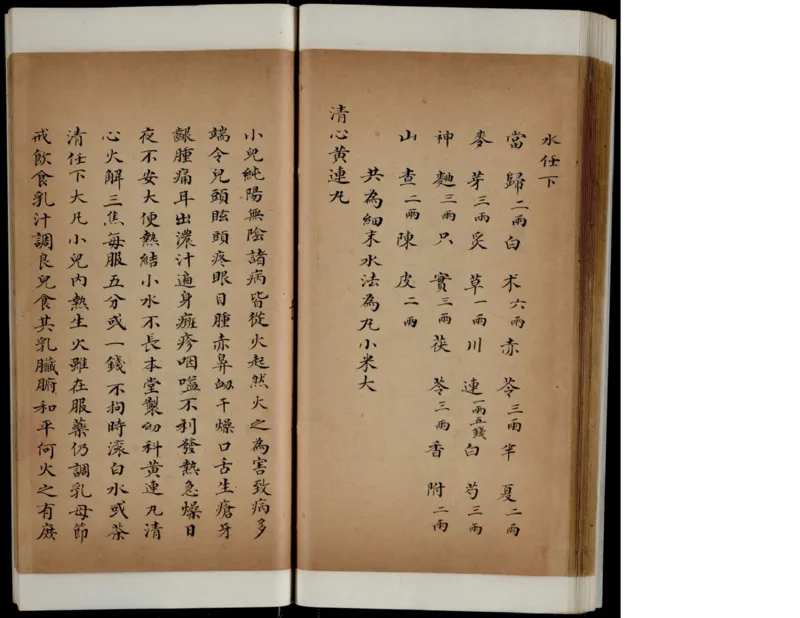 水任下
當歸二兩白术六兩赤苓三兩半夏二兩
麥芽三兩炙草一兩川連一兩五錢白芍三兩
神麯三兩只實三兩茯苓三兩香附二兩
山查二兩陳皮二兩
共為細末水法為丸小米大
清心黄連丸
小兒純陽無陰諸病皆從火起然火之為害致病多
端令兒頭眩頭疼眼目腫赤鼻衂干燥口舌生瘡牙
齦腫痛耳出濃汁遍身癍疹咽嗌不利發熱急燥日
夜不安大便熱結小水不長本堂製幼科黄連丸清
心火解三焦每服五分或一錢不拘時滚白水或茶
清任下大凡小兒内熱生火雖在服藥仍調乳母節
戒飲食乳汁調良兒食其乳臟腑和平何火之有庶